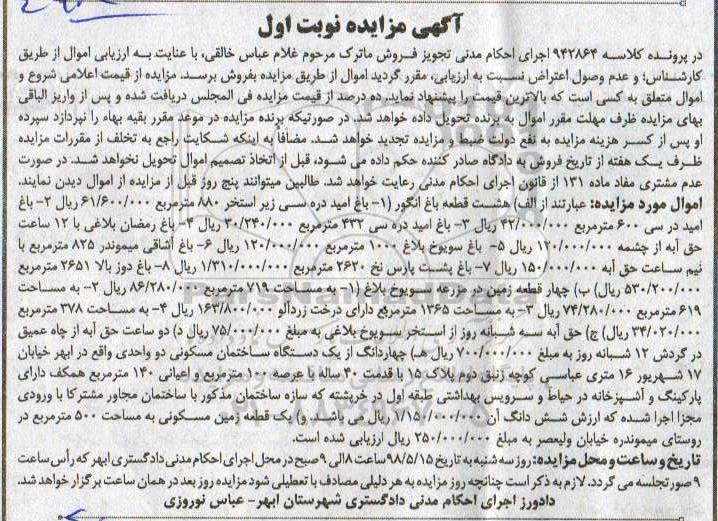 آگهی مزایده نوبت اول
در پرونده کلاسه ۹۴۲۸۶۴ اجرای احکام مدنی تجویز فروش ماترک مرحوم غلام عباس خالقی، با عنایت به ارزیابی اموال از طریق
کارشناس؛ و عدم وصول اعتراض نسبت به ارزیابی، مقرر گردید اموال از طریق مزایده بفروش برسد. مزایده از قیمت اعلامی شروع و
اموال متعلق به کسی است که بالاترین قیمت را پیشنهاد نماید. ده درصد از قیمت مزایده فی المجلس دریافت شده و پس از واریز الباقی
بهای مزایده ظرف مهلت مقرر اموال به برنده تحویل داده خواهد شد. در صورتیکه برنده مزایده در موعد مقرر بقیه بهاء را نپردازد سپرده
او پس از کسر هزینه مزایده به نفع دولت ضبط و مزایده تجدید خواهد شد. مضافاً به اینکه شکایت راجع به تخلف از مقررات مزایده
ظرف یک هفته از تاریخ فروش به دادگاه صادر کننده حکم داده می شود، قبل از اتخاذ تصمیم اموال تحویل نخواهد شد. در صورت
عدم مشتری مفاد ماده ۱۳۱ از قانون اجرای احکام مدنی رعایت خواهد شد. طالبین میتوانند پنج روز قبل از مزایده از اموال دیدن نمایند.
اموال مورد مزایده: عبارتند از الف) هشت قطعه باغ انگور (۱- باغ امید دره سی زیر استخر ۸۸۰ مترمربع ۶۱/۶۰۰/۰۰۰ ریال ۲- باغ
امید در سی ۶۰۰ مترمربع ۴۲/۰۰۰/۰۰۰ ریال ۳- باغ امید دره سی ۴۳۲ مترمربع ۳۰/۲۴۰/۰۰۰ ریال ۴- باغ رمضان بلاغی با ۱۲ ساعت
حق آبه از چشمه ۱۲۰/۰۰۰/۰۰۰ ریال ۵- باغ سویوخ بلاغ ۱۰۰۰ مترمربع ۱۲۰/۰۰۰/۰۰۰ ریال ۶- باغ آشاقی میموندر ۸۲۵ مترمربع با
نیم ساعت حق آبه ۱۵۰/۰۰۰/۰۰۰ ریال ۷- باغ پشت پارس نخ ۲۶۲۰ مترمربع ۱/۳۱۰/۰۰۰/۰۰۰ ریال ۸- باغ دوز بالا ۲۶۵۱ مترمربع
۵۳۰/۲۰۰/۰۰۰ ریال) ب) چهار قطعه زمین در مزرعه سویوخ بلاغ (۱- به مساحت ۷۱۹ مترمربع ۸۶/۲۸۰/۰۰۰ ریال ۲- به مساحت
۶۱۹ مترمربع ۷۴/۲۸۰/۰۰۰ ریال ۳- به مساحت ۱۳۶۵ مترمربع دارای درخت زردآلو ۱۶۳/۸۰۰/۰۰۰ ریال ۴- به مساحت ۳۷۸ مترمربع
۳۴/۰۲۰/۰۰۰ ریال) ج) حق آبه سه شبانه روز از استخر سویوخ بلاغی به مبلغ ۷۵/۰۰۰/۰۰۰ ریال د) دو ساعت حق آبه از چاه عمیق
در گردش ۱۲ شبانه روز به مبلغ ۷۰۰/۰۰۰/۰۰۰ ریال هـ) چهاردانگ از یک دستگاه ساختمان مسکونی دو واحدی واقع در ابهر خیابان
۱۷ شهریور ۱۶ متری عباسی کوچه زنبق دوم پلاک ۱۵ با قدمت ۴۰ ساله با عرصه ۱۰۰ مترمربع و اعیانی ۱۴۰ مترمربع همکف دارای
پارکینگ و آشپزخانه در حیاط و سرویس بهداشتی طبقه اول در خرپشته که سازه ساختمان مذکور با ساختمان مجاور مشترکا با ورودی
مجزا اجرا شده که ارزش شش دانگ آن ۱/۱۵۰/۰۰۰/۰۰۰ ریال می باشد. و) یک قطعه زمین مسکونی به مساحت ۵۰۰ مترمربع در
روستای میموندره خیابان ولیعصر به مبلغ ۲۵۰/۰۰۰/۰۰۰ ریال ارزیابی شده است.
تاریخ و ساعت و محل مزایده: روز سه شنبه به تاریخ ۹۸/۵/۱۵ ساعت ۸ الی ۹ صبح در محل اجرای احکام مدنی دادگستری ابهر که رأس ساعت
۹ صورتجلسه می گردد. لازم به ذکر است چنانچه روز مزایده به هر دلیلی مصادف با تعطیلی شود مزایده روز بعد در همان ساعت برگزار خواهد شد.
دادورز اجرای احکام مدنی دادگستری شهرستان ابهر- عباس نوروزی